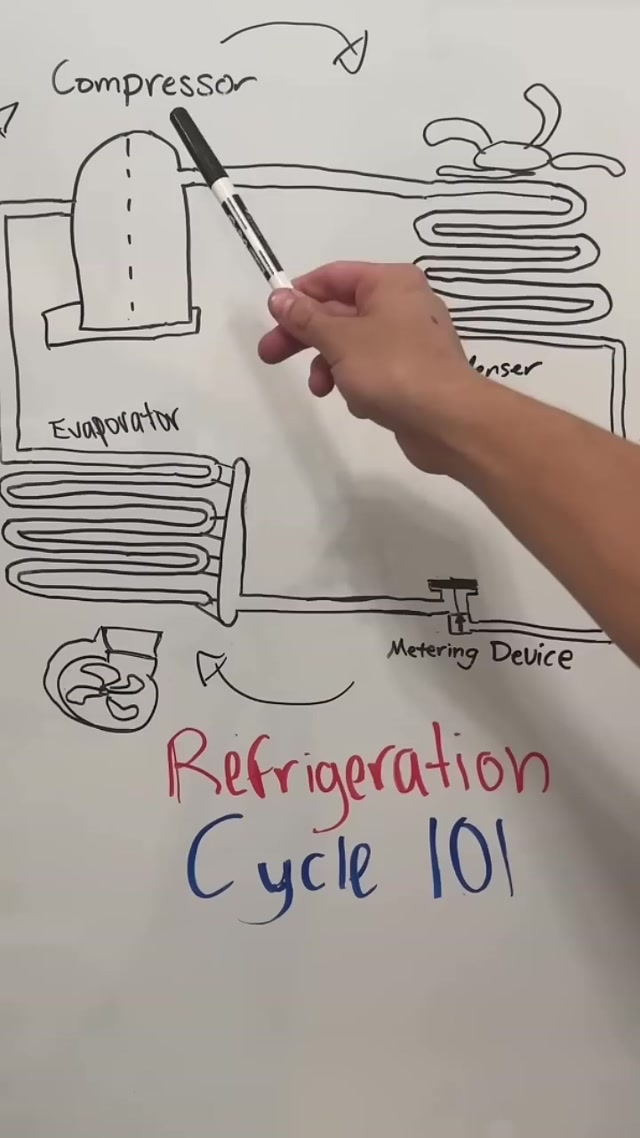 Compressor
Evaporator
Metering Device
Refrigeration
Cycle 101